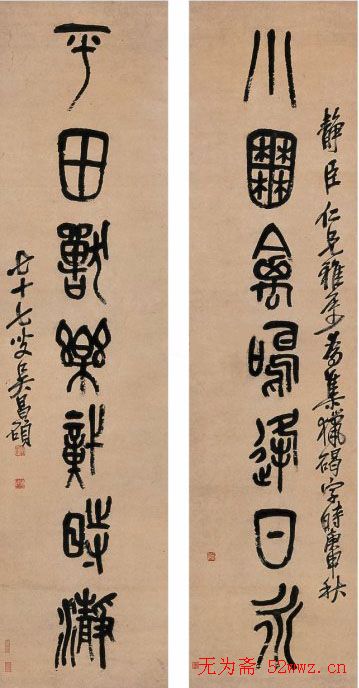 小囿禽鳴逢日永
靜臣仁兄雅屬為集獵碣字時庚申秋
平田獸樂時瀞
七十七叟吳昌碩
无为斋 52wwz.cn